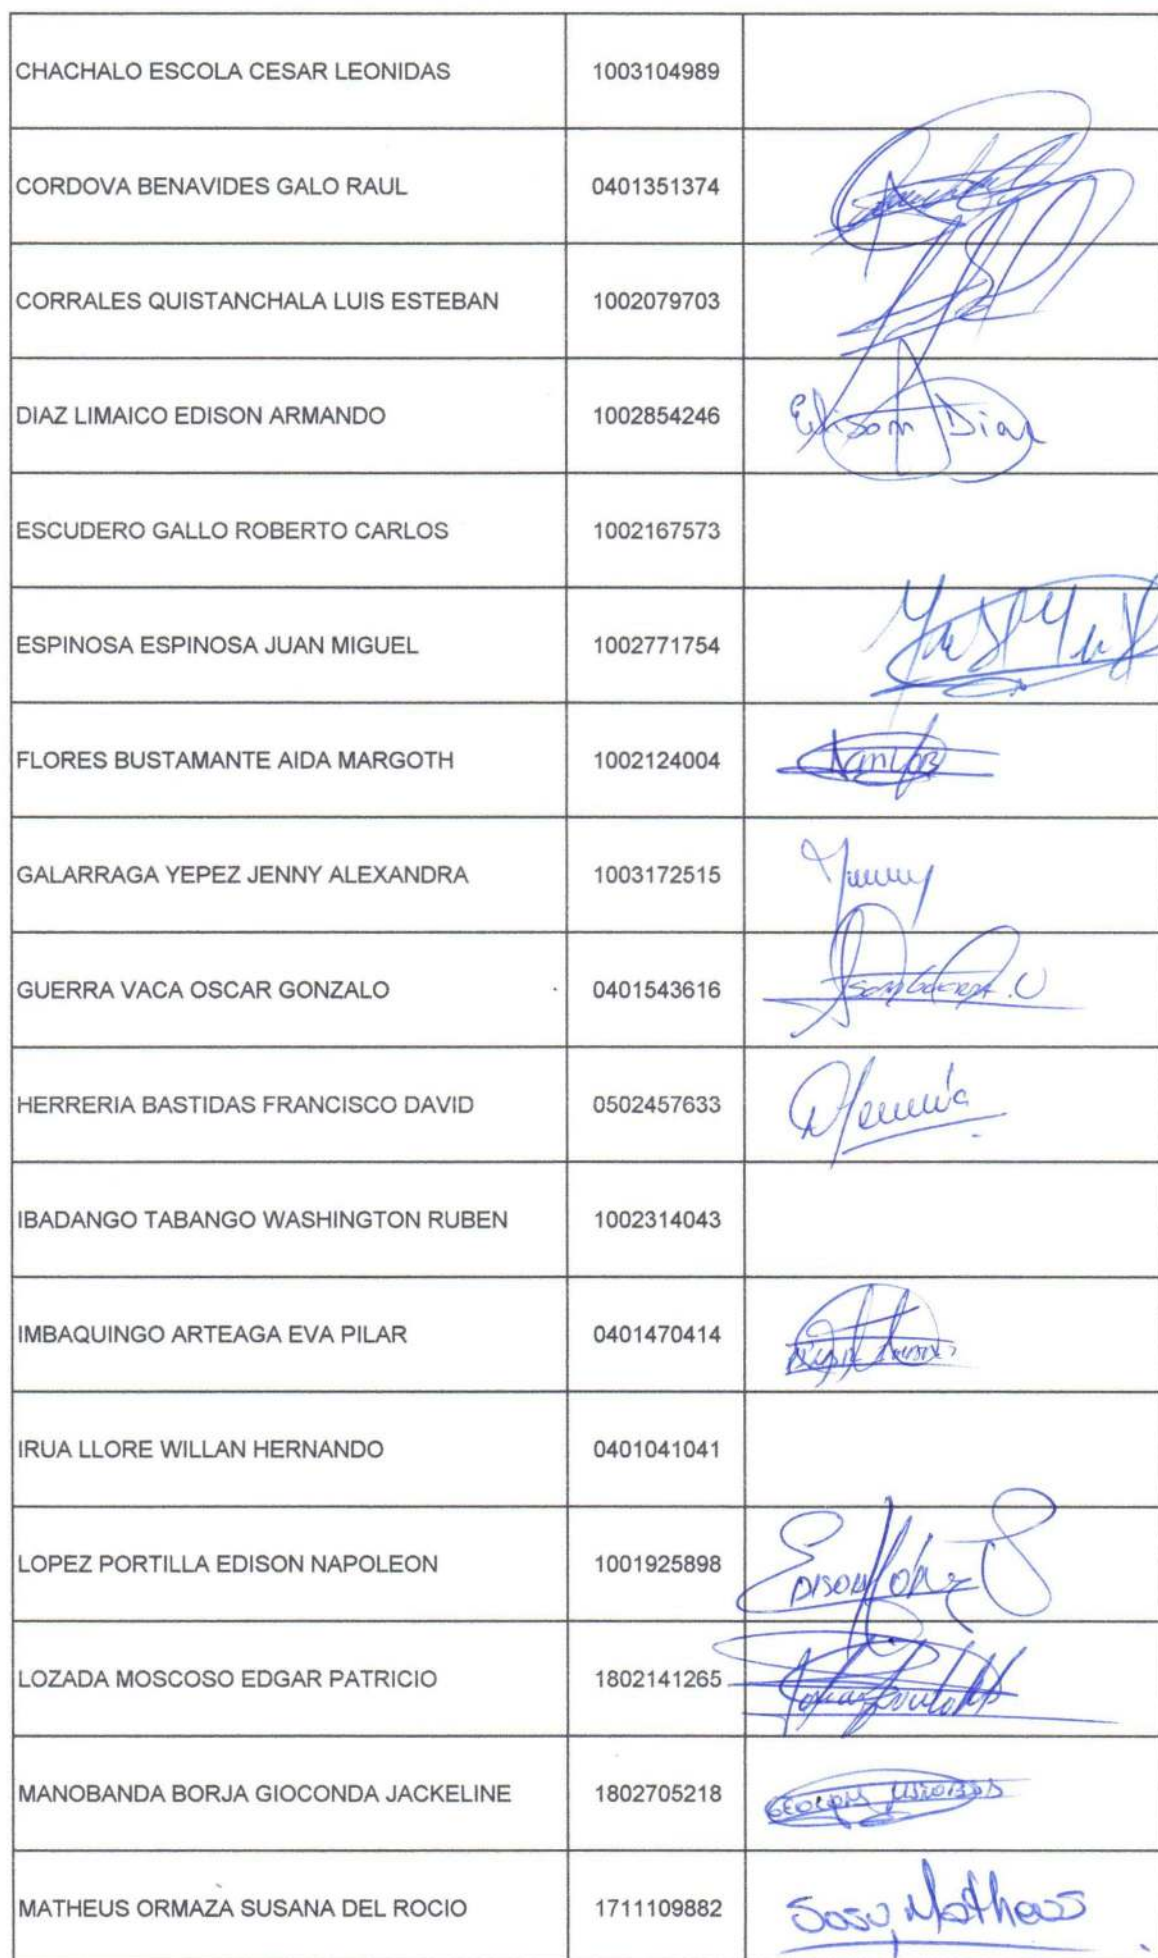 CHACHALO ESCOLA CESAR LEONIDAS 1003104989
CORDOVA BENAVIDES GALO RAUL 0401351374
CORRALES QUISTANCHALA LUIS ESTEBAN 1002079703
DIAZ LIMAICO EDISON ARMANDO 1002854246 Edison Diaz
ESCUDERO GALLO ROBERTO CARLOS 1002167573
ESPINOSA ESPINOSA JUAN MIGUEL 1002771754
FLORES BUSTAMANTE AIDA MARGOTH 1002124004
GALARRAGA YEPEZ JENNY ALEXANDRA 1003172515 Jenny
GUERRA VACA OSCAR GONZALO 0401543616
HERRERIA BASTIDAS FRANCISCO DAVID 0502457633
IBADANGO TABANGO WASHINGTON RUBEN 1002314043
IMBAQUINGO ARTEAGA EVA PILAR 0401470414
IRUA LLORE WILLAN HERNANDO 0401041041
LOPEZ PORTILLA EDISON NAPOLEON 1001925898 EDISON López
LOZADA MOSCOSO EDGAR PATRICIO 1802141265
MANOBANDA BORJA GIOCONDA JACKELINE 1802705218
MATHEUS ORMAZA SUSANA DEL ROCIO 1711109882 Susy Matheus